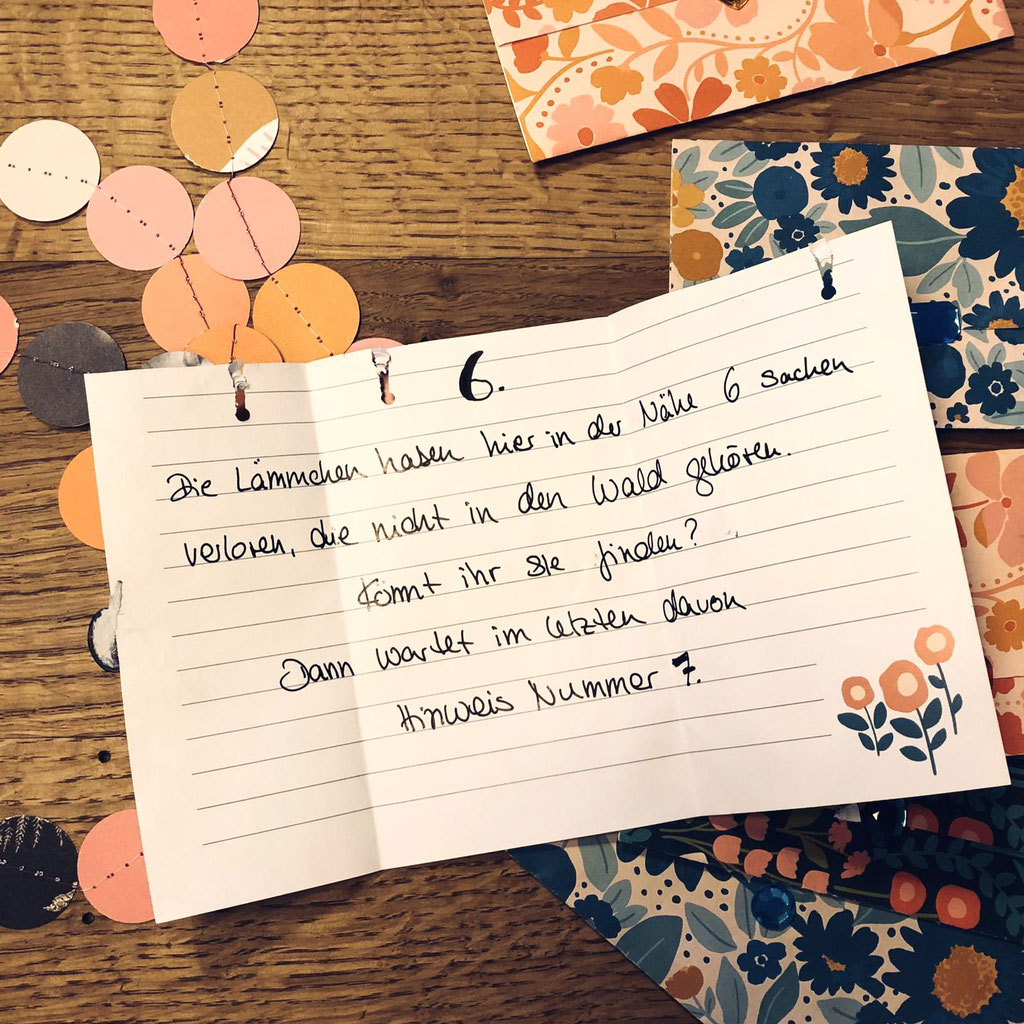 6.
Die Lämmchen haben hier in der Nähe 6 Sachen
verloren, die nicht in den Wald gehören.
Könnt ihr sie finden?
Dann wartet im letzten davon
Hinweis Nummer 7.